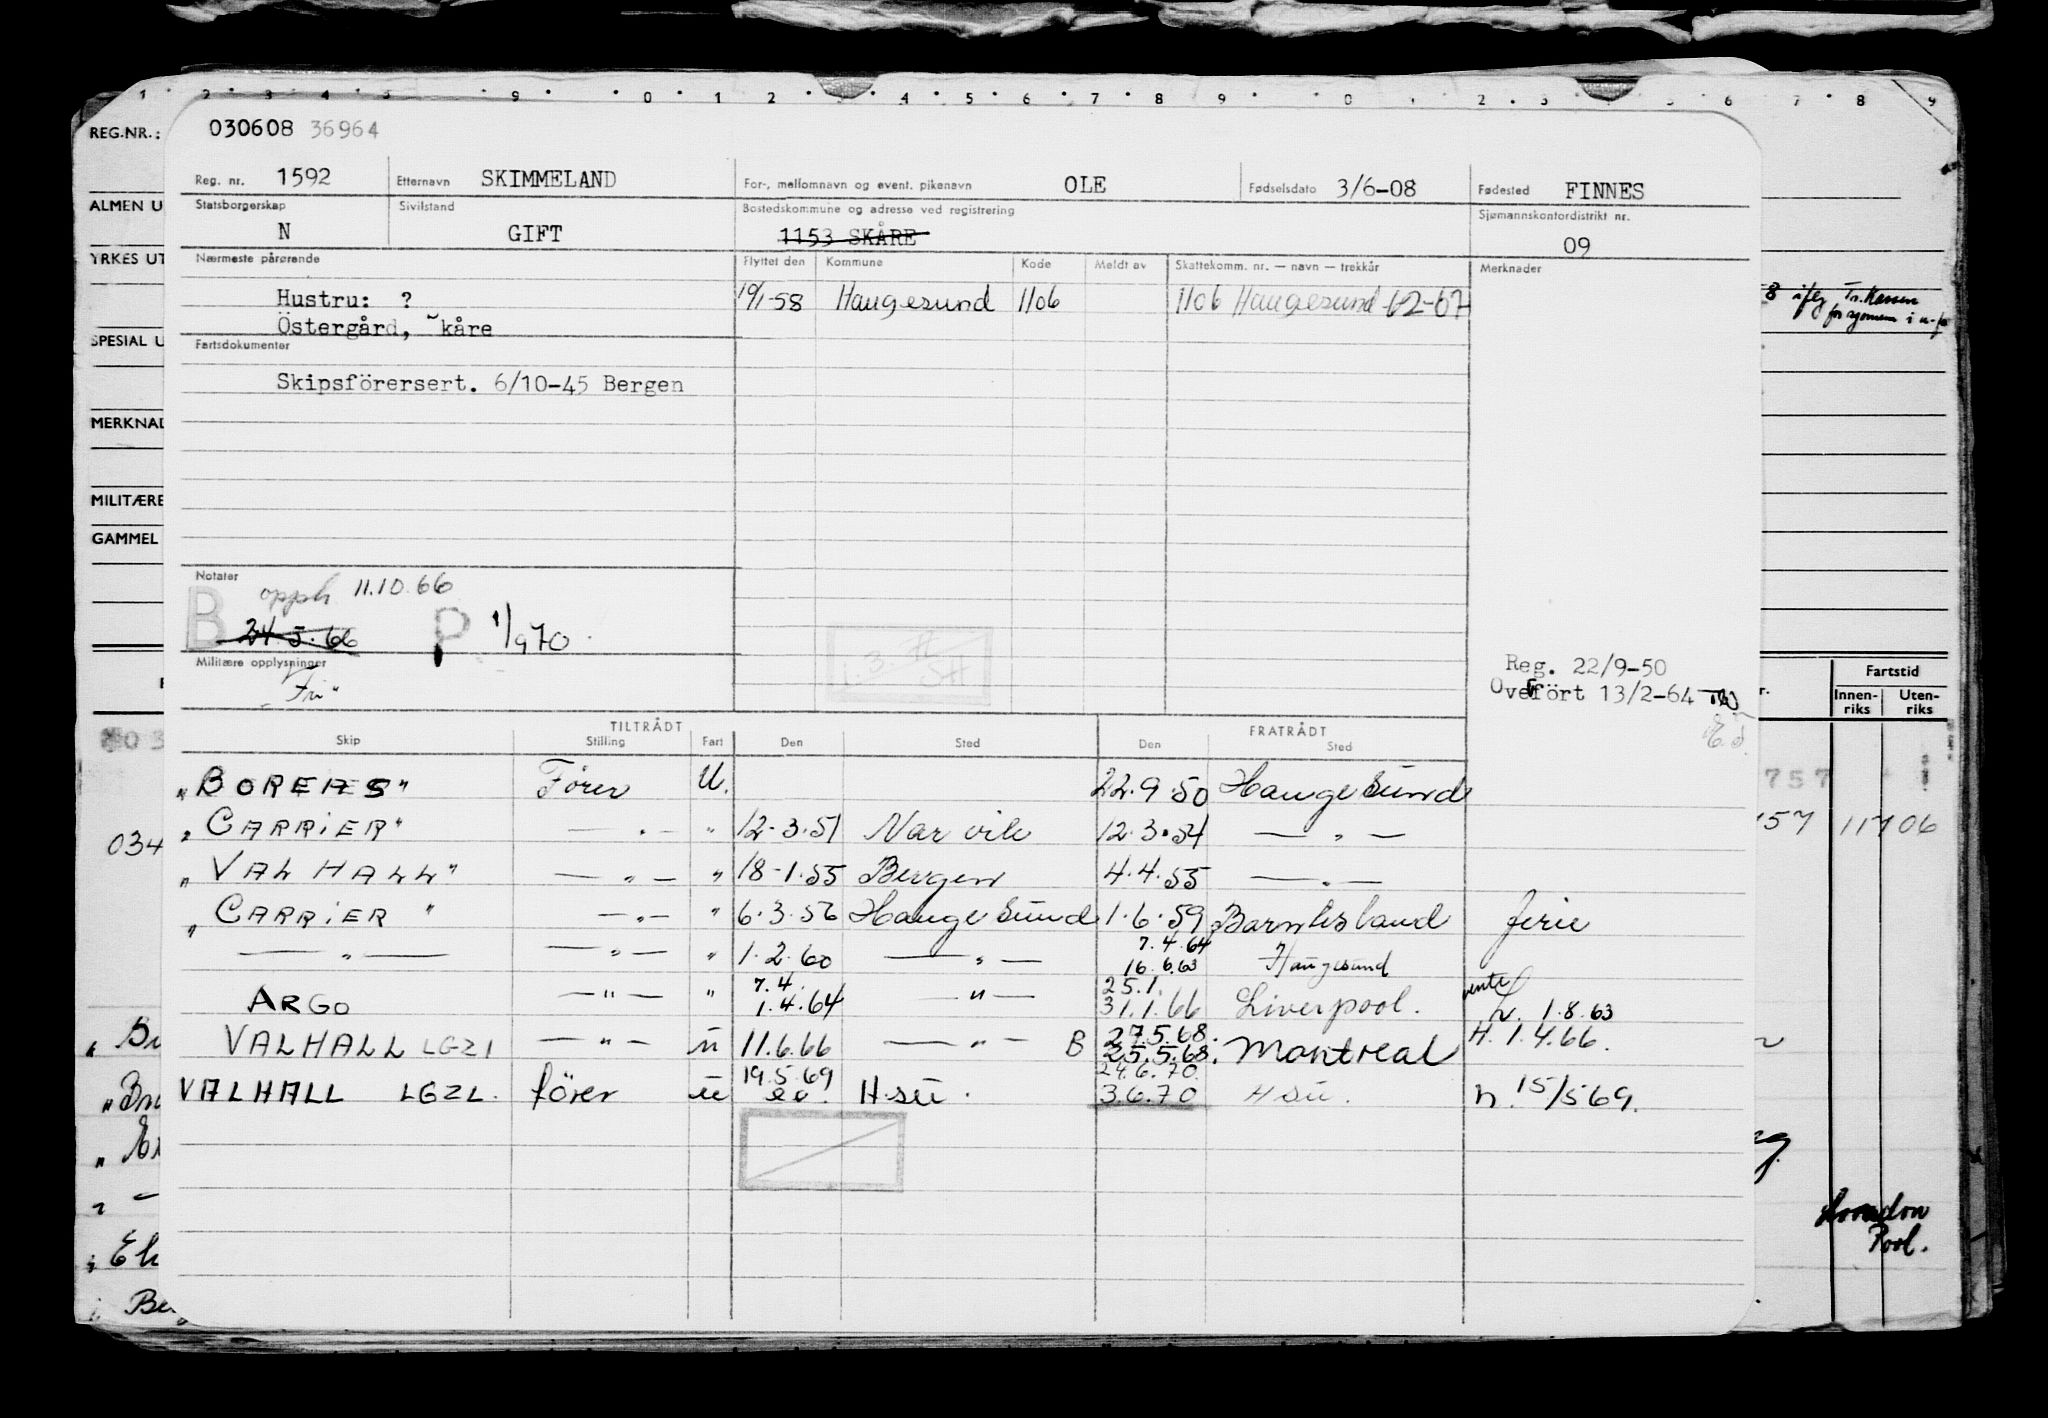 1 2 3 4 5 9 0 1 2 4 5 6 7 8 9 0 1 2 3 5 6 7 8 9
REG.NR.:
030608 36964
Reg. nr. 1592 Etternavn SKIMMELAND For-, mellomnavn og event. pikenavn OLE Fødselsdato 3/6-08 Fødested FINNES
ALMEN U
Statsborgerskap N Sivilstand GIFT Bostedskommune og adresse ved registrering 1153 SKÅRE Sjømannskontordistrikt nr. 09
YRKES UT
Nærmeste pårørende Flyttet den Kommune Kode Meldt av Skattekomm. nr. — navn — trekkår Merknader
Hustru: ? 19/1-58 Haugesund 1106 1106 Haugesund 62-67
8 iflg Tr.kassen
for sjømenn i u-f
Östergård, kåre
SPESIAL U
Fartsdokumenter
Skipsförersert. 6/10-45 Bergen
MERKNAD
MILITÆRE
GAMMEL
Notater
B opph 11.10.66
24.5.66 P 1/9 70
Militære opplysninger
"Fri"
Reg. 22/9-50
Overfört 13/2-64
Fartstid
Innen-riks Uten-riks
TILTRÅDT FRATRÅDT
Skip Stilling Fart Den Sted Den Sted
"BOREAS" Fører U. 22.9.50 Haugesund
757
"CARRIER" — " — " 12-3.51 Narvik 12.3.54 — " —
034
57 11 06
"VALHALL" — " — " 18-1.55 Bergen 4.4.55 — " —
"CARRIER" — " — " 6.3.56 Haugesund 1.6.59 Barn Island ferie
— " — — " — " 1.2.60 — " — 7.4.64 16.6.63 Haugesund
ARGO — " — " 7.4. 1.4.64 — " — 25.1. 31.1.66 Liverpool. vente h. 1.8.63
VALHALL LGZI — " — u 11.6.66 — " — B 27.5.68. 25.5.68. Montreal H. 1.4.66.
VALHALL LGZL. fører u 19.5.69 H.su. 24.6.70 3.6.70 H su. h. 15/5 69.
London
Pool.